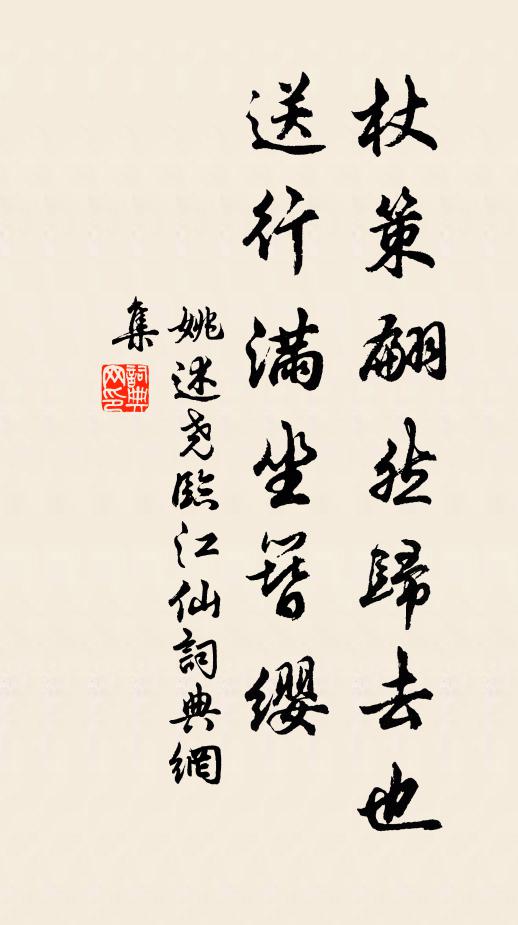 杖策翩然歸去也
送行滿坐簪纓
姚述堯臨江仙詞典網
集
詞典
网印